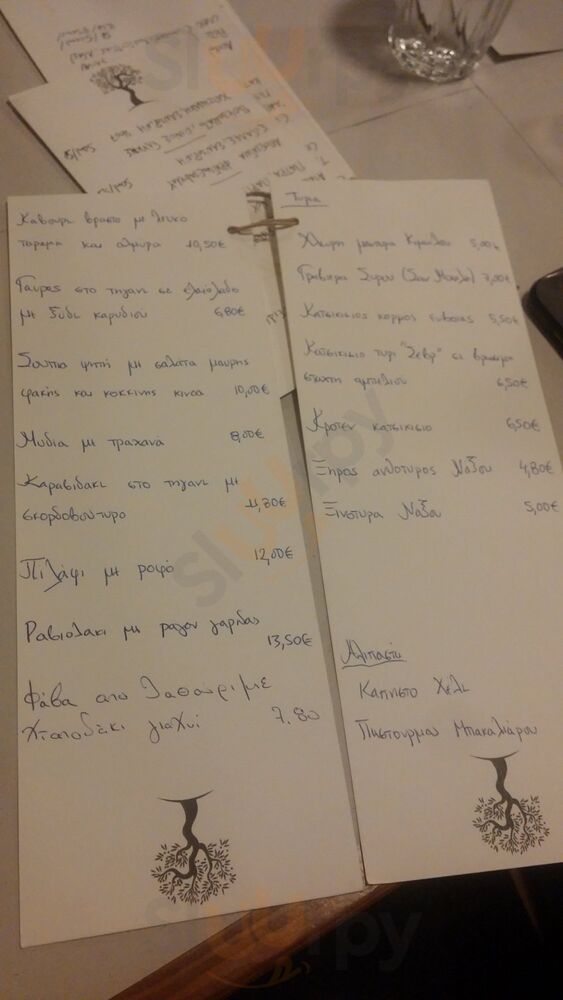 Καβουρι βραστο με λευκο
ταραμα και αλμυρα 10,50€
Γαυρος στο τηγανι σε ελαιολαδο
με ξυδι καρυδιου 6,80€
Σουπια ψητη με σαλατα μαυρης
φακης και κοκκινης κινοα 10,00€
Μυδια με τραχανά 8,00€
Καραβιδακι στο τηγανι με
σκορδοβουτυρο 11,80€
Πιλάφι με ροφό 12,00€
Ραβιολακι με ραγου γαρίδας
13,50€
Φάβα απο λαθούρι με
χταποδάκι γιαχνί 7.80
Τυρια
Χλωρη μανουρα Κιμωλου 5,00€
Γραβιερα Συρου (Σαν Μιχαλη) 7,00€
Κατσικισιος κορμος ευβοιας 5,50€
Κατσικισιο τυρι "Σεβρ" σε βρωσιμη
σταχτη αμπελιου 6,50€
Κροτεν κατσικισιο 6,50€
Ξηρος ανθοτυρος Νάξου 4,80€
Ξινοτυρα Νάξου 5,00€
Αλιπαστα
Καπνιστο Χελι
Παστουρμα Μπακαλιάρου
sluurpy